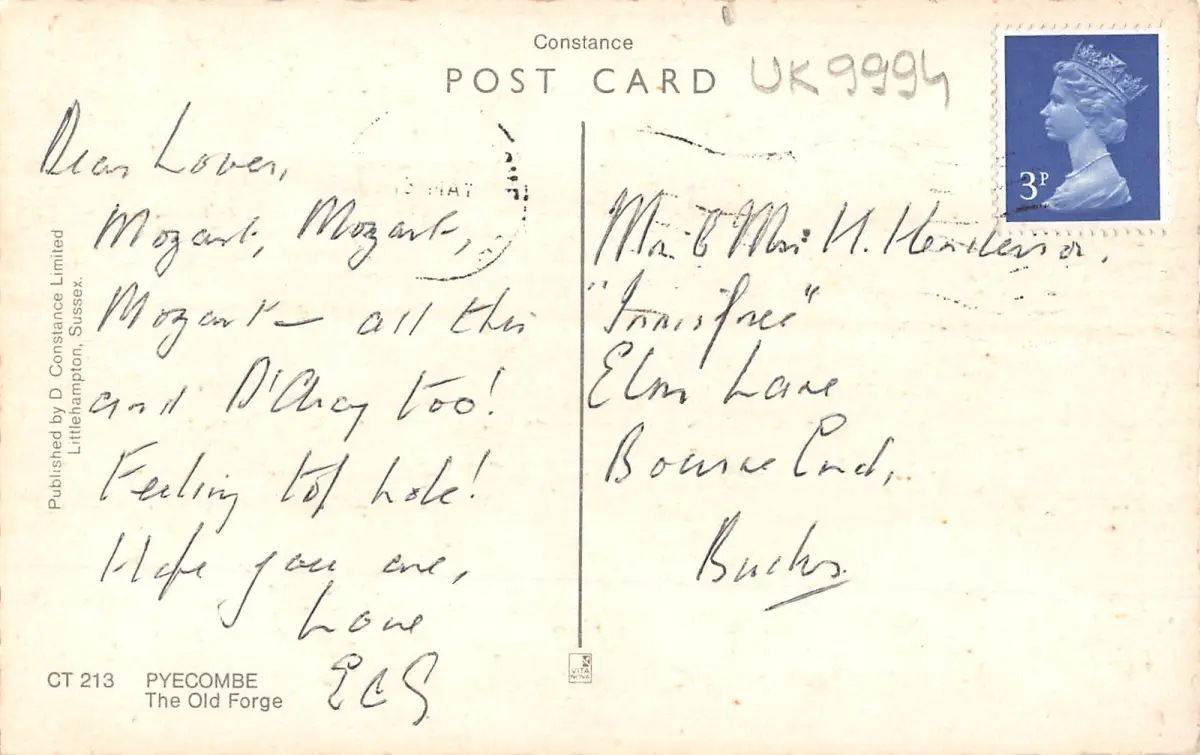 Constance
POST CARD
UK9994
3P
MAY
Dear Lover,
Mozart, Mozart,
Mozart – all this
and D'Chay too!
Feeling top hole!
Hope you are,
Love
Mr & Mrs H. Henderson.
"Innisfree"
Elm Lane
Bourne End,
Bucks.
Published by D. Constance Limited
Littlehampton, Sussex.
CT 213 PYECOMBE
The Old Forge
VITA
NOVA